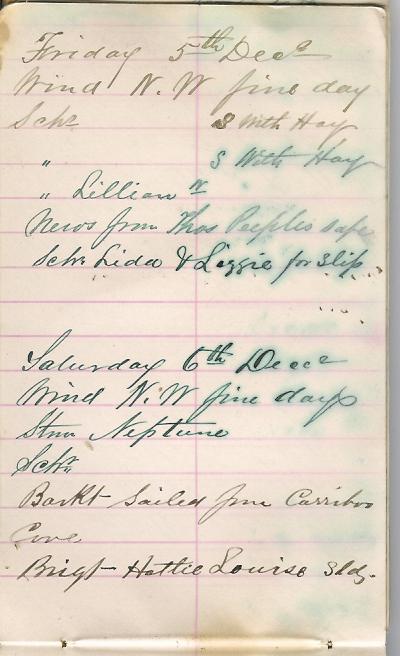 Friday 5th Decr
Wind N. W fine day
Schr S With Hay
" S With Hay
" Lillian W
News from Thos Peeples safe
Schr Lida & Lizzie for Slip
Saturday 6th Decr
Wind N. W fine day
Stmr Neptune
Schr
Barkt Sailed from Carriboo
Cove
Brigt Hattie Louise Sldg.